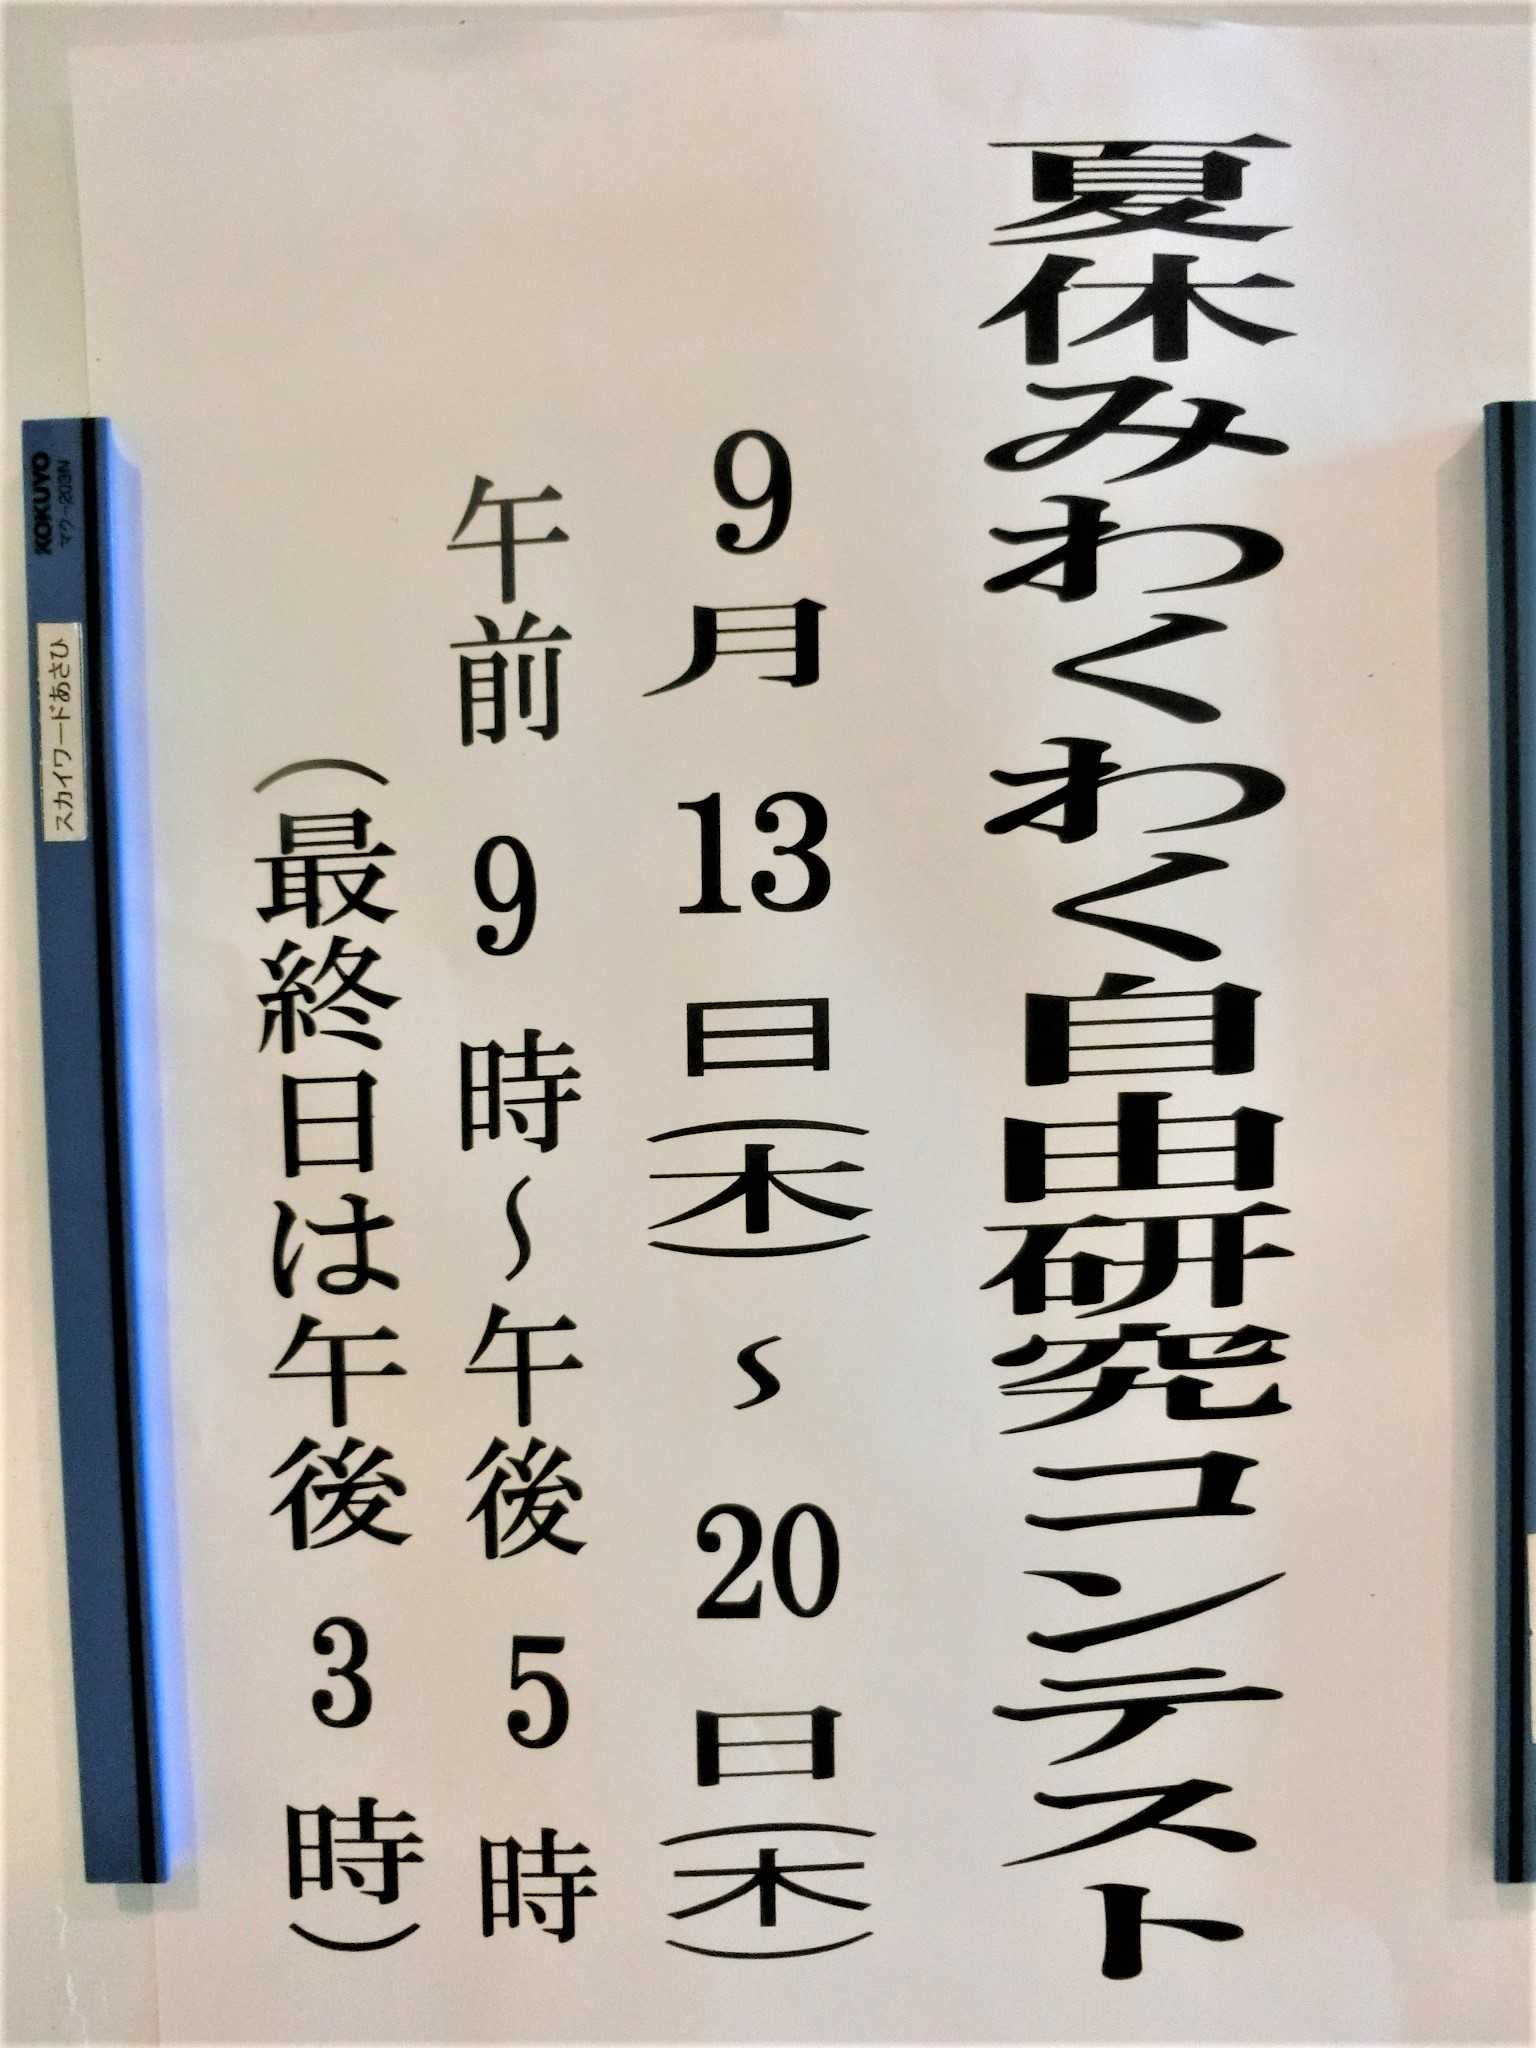 夏休みわくわく自由研究コンテスト
9月13日(木)～20日(木)
午前9時～午後5時
(最終日は午後3時)
KOKUYO
マク-203N
スカイワードあさひ